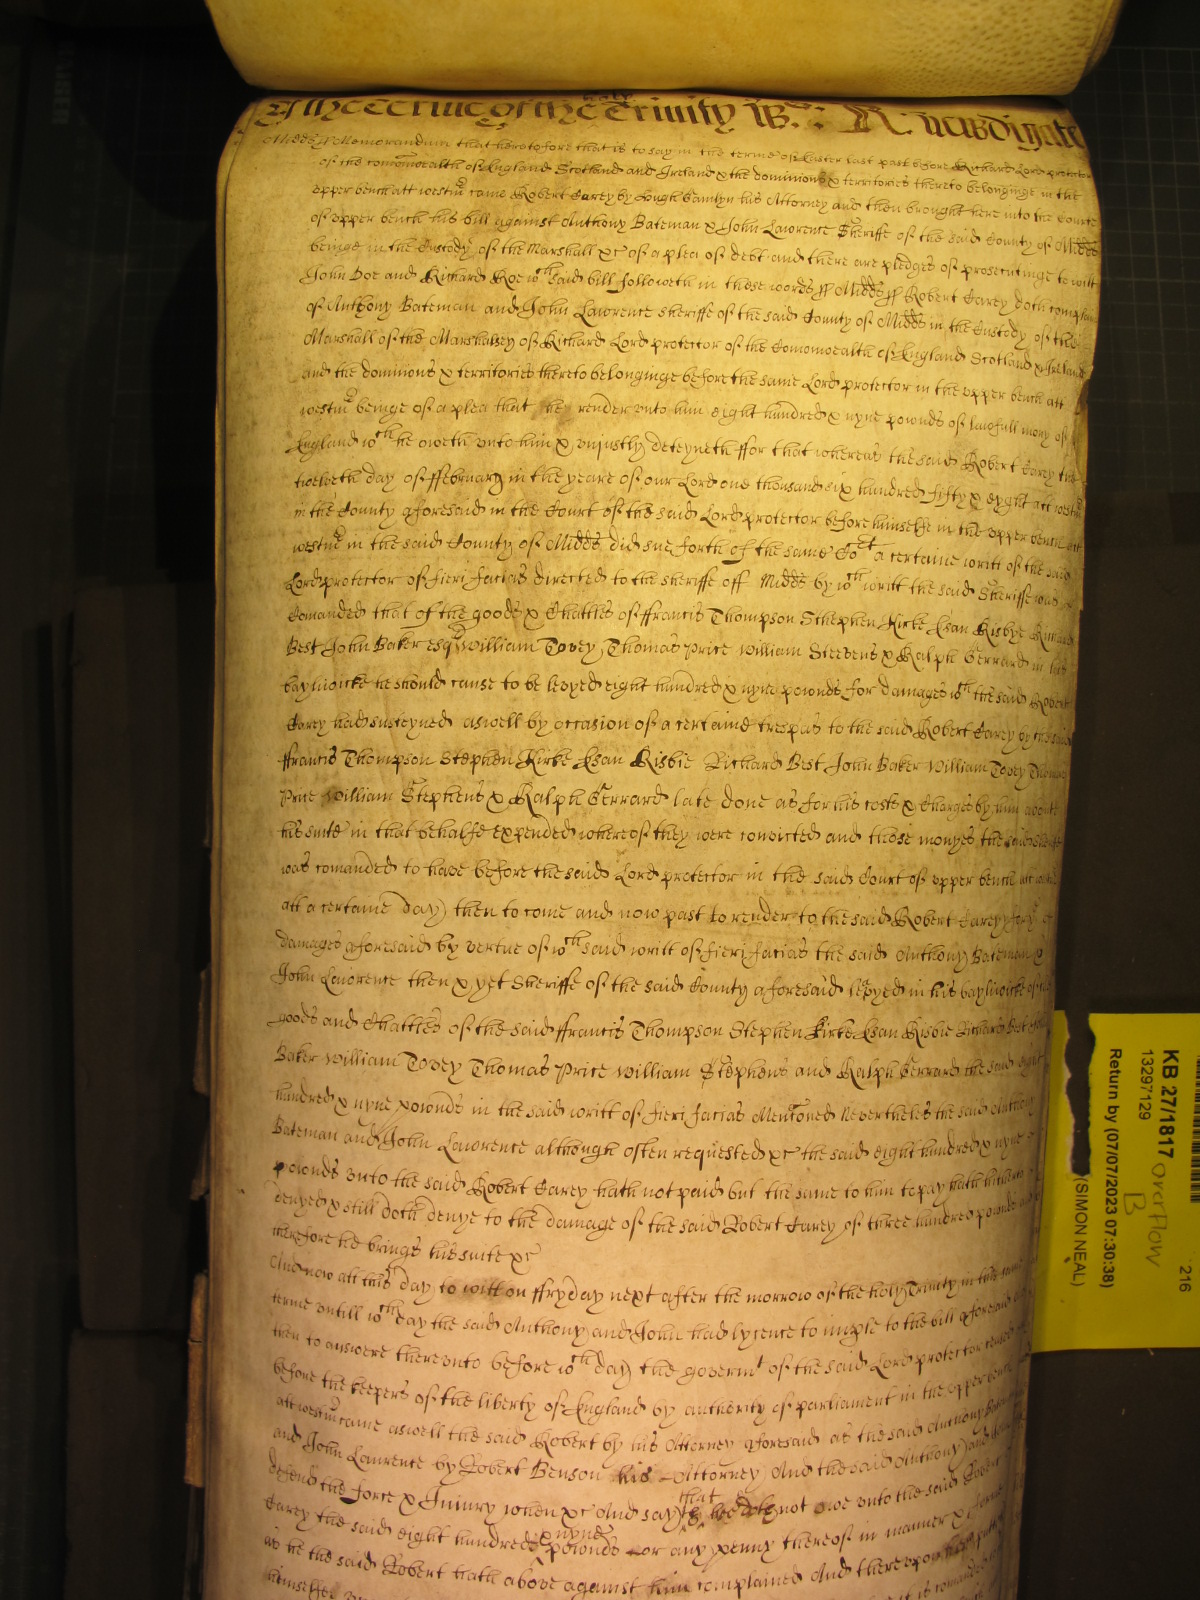 of the Trinity 1659 : R: Newdigate
Midds ss Memorandum that heretofore that is to say in the terme of Easter last past before Richard Lord protector
of the comonwealth of England Scotland and Ireland & the dominions & territories thereto belonginge in the
upper bench att westmr came Robert Carey by Hugh his Attorney and then brought here into the Courte
of upper bench his bill against Anthony Bateman & John Lawrence Sheriffe of the said County of Midds
beinge in the Custody of the Marshall &c of a plea of debt and there are pledges of prosecutinge to witt
John Doe and Richard Roe wch said bill followeth in these words ss Midds ss Robert Carey doth complaine
of Anthony Bateman and John Lawrence sheriffe of the said County of Midds in the Custody of the
Marshall of the Marshalsey of Richard Lord protector of the Comonwealth of England Scotland & Ireland
and the dominions & territories thereto belonginge before the same Lord protector in the upper bench att
westmr beinge of a plea that he render unto him eight hundred & nyne pownds of lawfull mony of
England wch he oweth unto him & unjustly deteyneth ffor that whereas the said Robert Carey the
twelveth day of ffebruary in the yeare of our Lord one thousand six hundred fifty & eyght att westmr
in the County aforesaid in the Court of the said Lord protector before himselfe in the upper bench att
westmr in the said County of Midds did sue forth of the same Cort a certaine writt of the said
Lord protector of fieri facias directed to the sheriffe off Midds by wch writt the said Sheriffe was
Comanded that of the goods & Chattles of ffrancis Thompson Stephen Kirke Esau Risbye Richard
Best John Baker esqr William Tovey Thomas Price William Steevens & Ralph Gerrard in his
baylwicke he should cause to be levyed eight hundred & nyne pownds for damages wch the said Robert
Carey had susteyned aswell by occasion of a certaine trespas to the said Robert Carey by the said
ffrancis Thompson Stephen Kirke Esau Risbie Richard Best John Baker William Tovey Thomas
Price William Stephens & Ralph Gerrard late done as for his costs & Charges by him about
his suite in that behalfe expended whereof they were convicted and those monyes the said sheriffe
was comanded to have before the said Lord protector in the said Court of upper bench att westmr
att a certaine day then to come and now past to render to the said Robert Carey for
damages aforesaid by vertue of wch said writt of fieri facias the said Anthony Bateman &
John Lawrence then & yet Sheriffe of the said County aforesaid levyed in his baylwicke of the
goods and Chattles of the said ffrancis Thompson Stephen Kirke Esau Risbie Richard Best
Baker William Tovey Thomas Price William Stephens and Ralph Gerrard the said eight
hundred & nyne pownds in the said writt of fieri facias Mentioned Neverthelesse the said Anthony
Bateman and John Lawrence although often requested &c the said eight hundred & nyne
pownds unto the said Robert Carey hath not paid but the same to him to pay hath hitherto
denyed & still doth denye to the damage of the said Robert Carey of three hundred pownds and
therefore he brings his suite &c
And now att this day to witt on ffryday next after the morrow of the holy Trinity in this same
terme untill wch day the said Anthony and John had lycence to imple to the bill aforesaid and
then to answere thereunto before wch day the governmt of the said Lord protector ceased
before the keepers of the liberty of England by authority of parliament in the upper bench
att westmr came aswell the said Robert by his Attorney aforesaid as the said Anthony Bateman
and John Laurence by Robert Benson his Attorney And the said Anthony and John
defend the force & Iniury when &c And say that he doth not owe unto the said Robert
Carey the said eight hundred & nyne pownds or any penny thereof in manner & forme
as he the said Robert hath above against him complained And thereupon
himselfe
KB 27/1817 overflow
13297129 B
Return by (07/07/2023 07:30:38)
(SIMON NEAL)
216